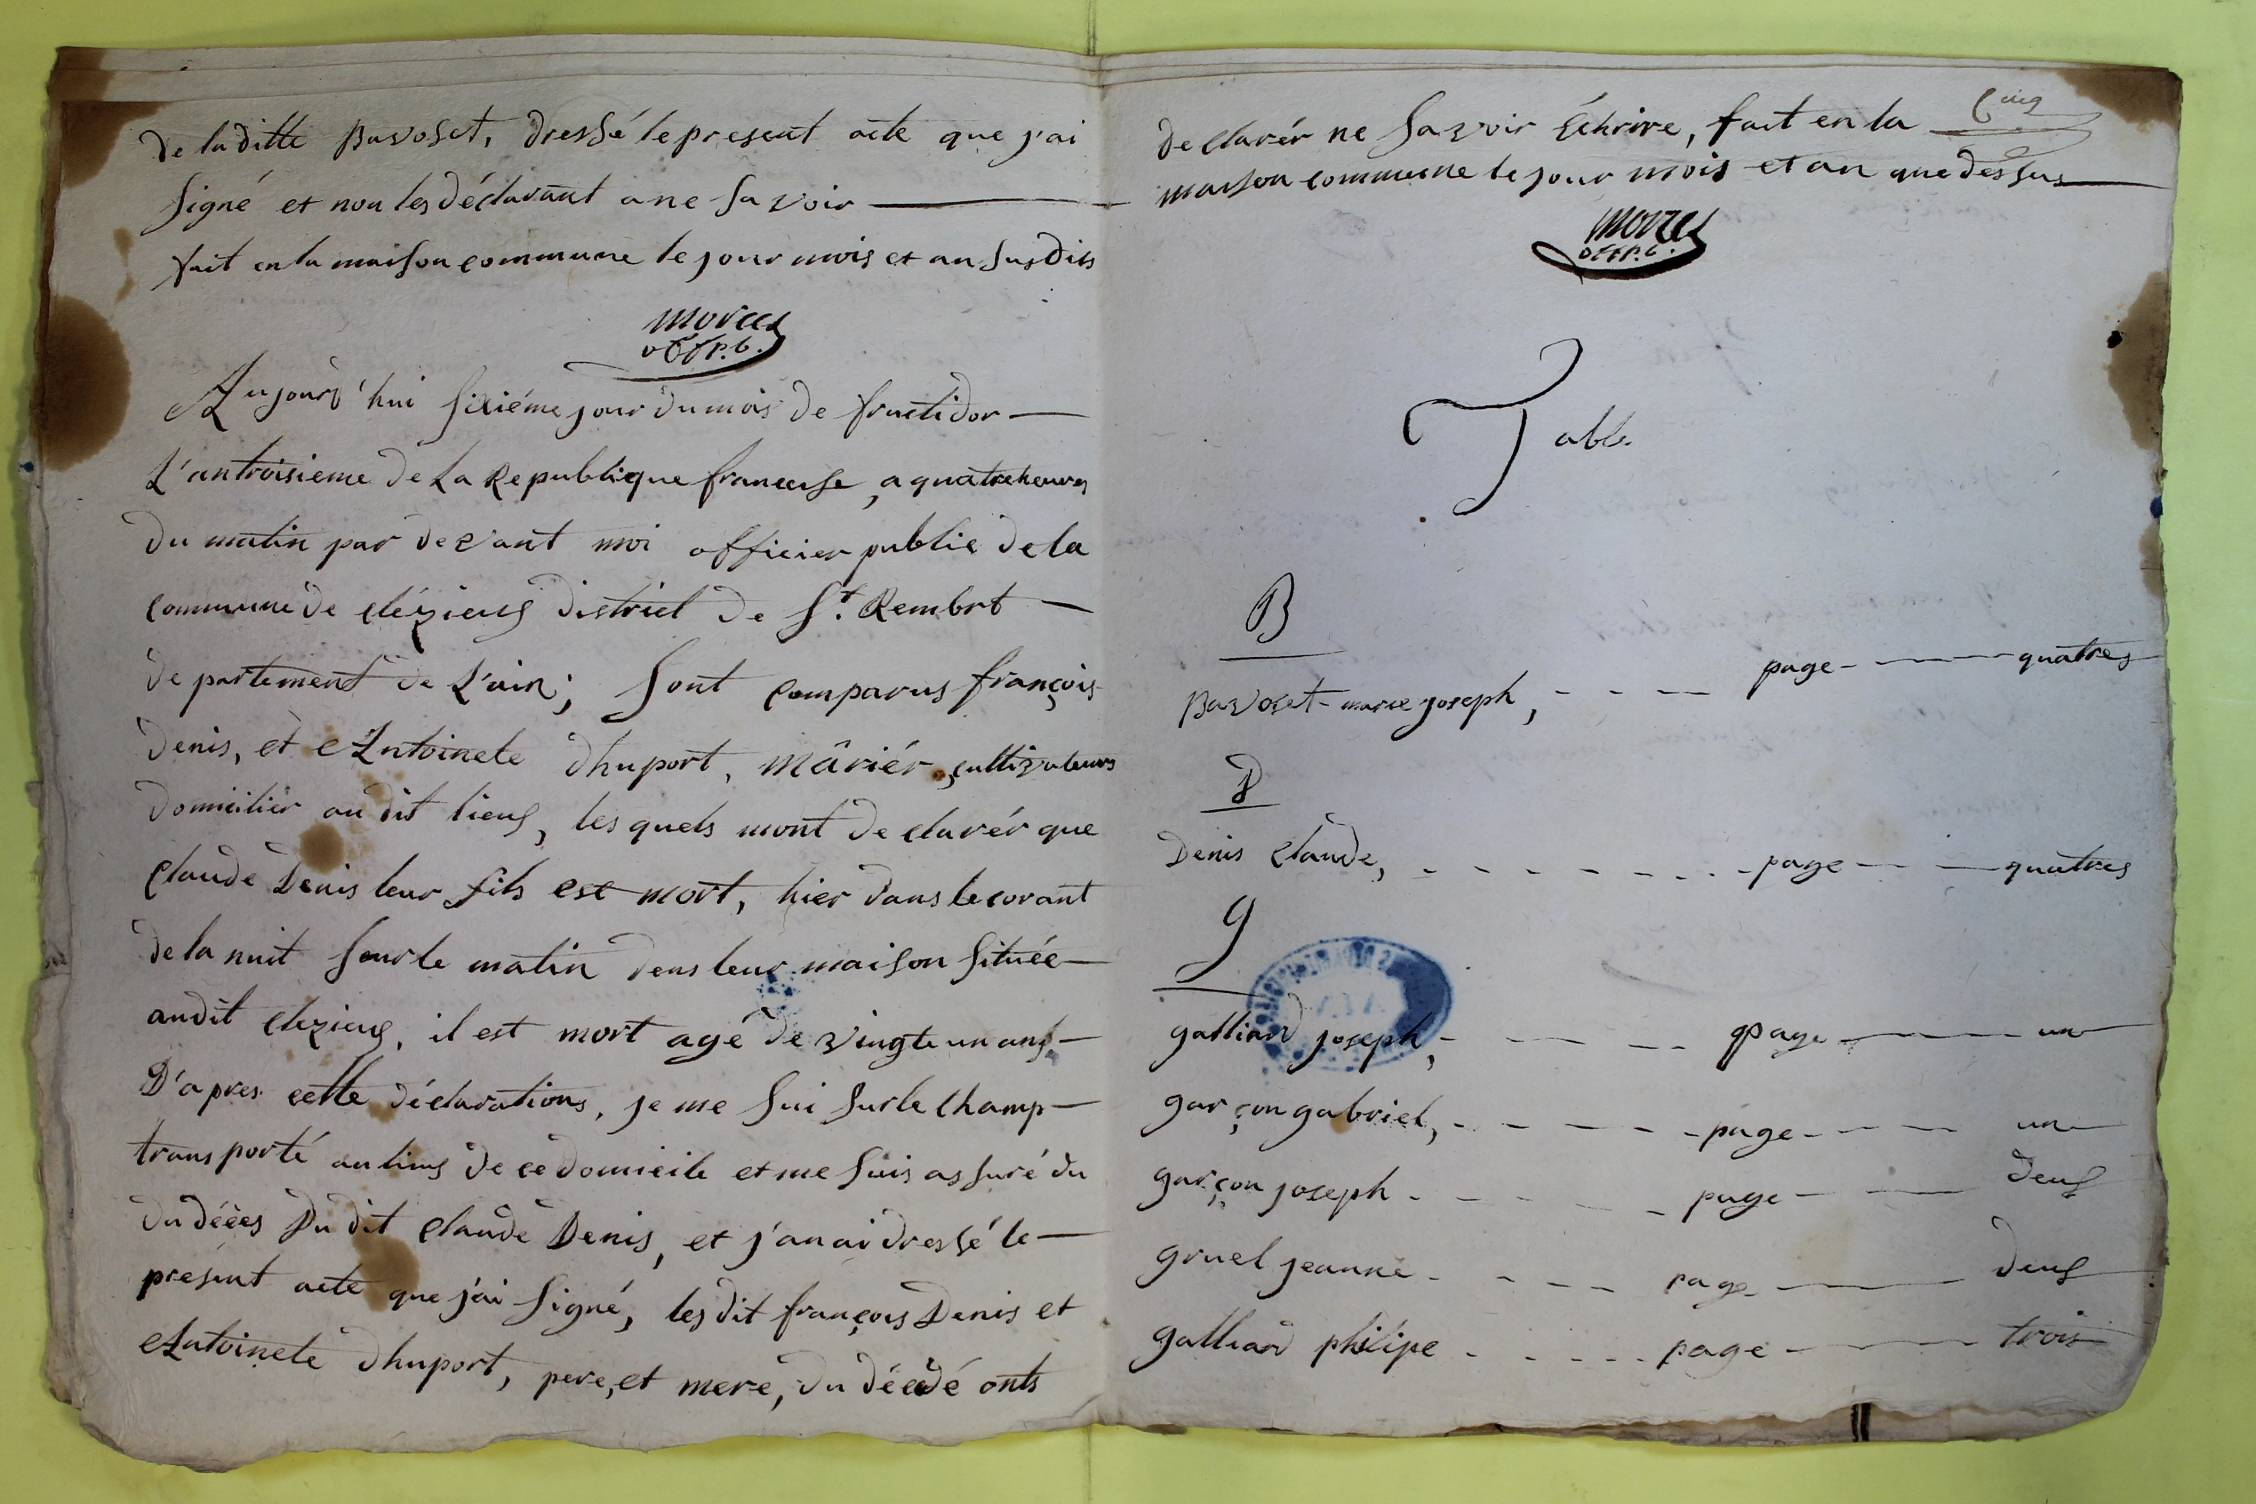 de laditte Bavoset, dressé le present acte que j'ai
signé et non les déclarant a ne savoir
fait en la maison commune le jour mois et an susdits
morel
off p.b.
Aujourd'hui sixiéme jour du mois de fructidor
L'an troisieme de La Republique francaise, a quatre heures
du matin par devant moi officier public de la
commune de clézieux district de St. Rembrt
departement de L'ain; sont comparus françois
Denis, et Antoinete dhuport, mâriér, cultivateurs
domicilier au dit lieux, les quels mont declarér que
Claude Denis leur fils est mort, hier dans le corant
de la nuit sur le matin dens leur maison située
audit clezieux, il est mort agé de vingte un ans,
D'apres cette déclarations, je me sui sur le champ
transporté au lieux de ce domicile et me suis assuré du
du décès Du dit Claude Denis, et j'an ai dressé le
present acte que j'ai signé, les dit françois Denis et
Antoinete dhuport, pere, et mere, du décédé onts
Cinq
declarér ne savoir Échrire, fait en la
maison commune le jour mois et an que dessus
morel
off p.b.
Table
B
Bavoset marie joseph, page quatres
D
Denis Claude, page quatres
g
galliand joseph, page un
garçon gabriel, page un
garçon joseph page deux
gruel jeanne page deux
galliand philipe page trois